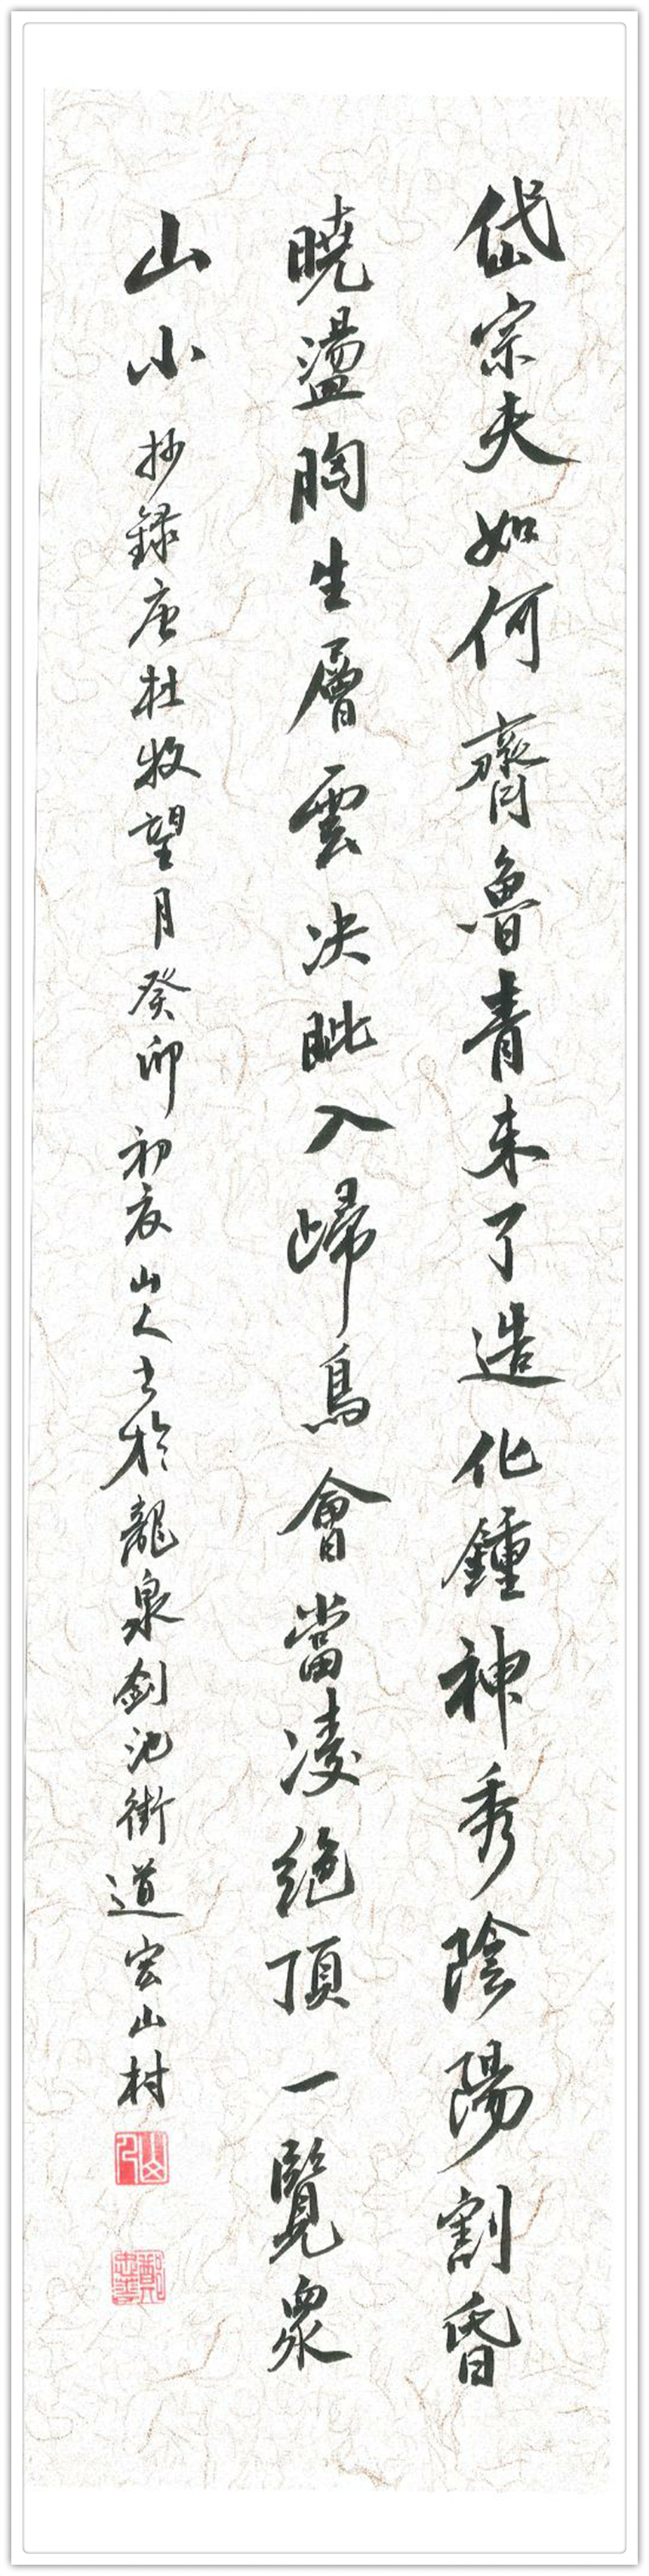 岱宗夫如何齊魯青未了造化鍾神秀陰陽割昏
曉盪胸生層雲決眦入歸鳥會當凌絕頂一覽衆
山小 抄録唐杜牧望月癸卯初夏山人書於龍泉劍池街道宏山村
山人